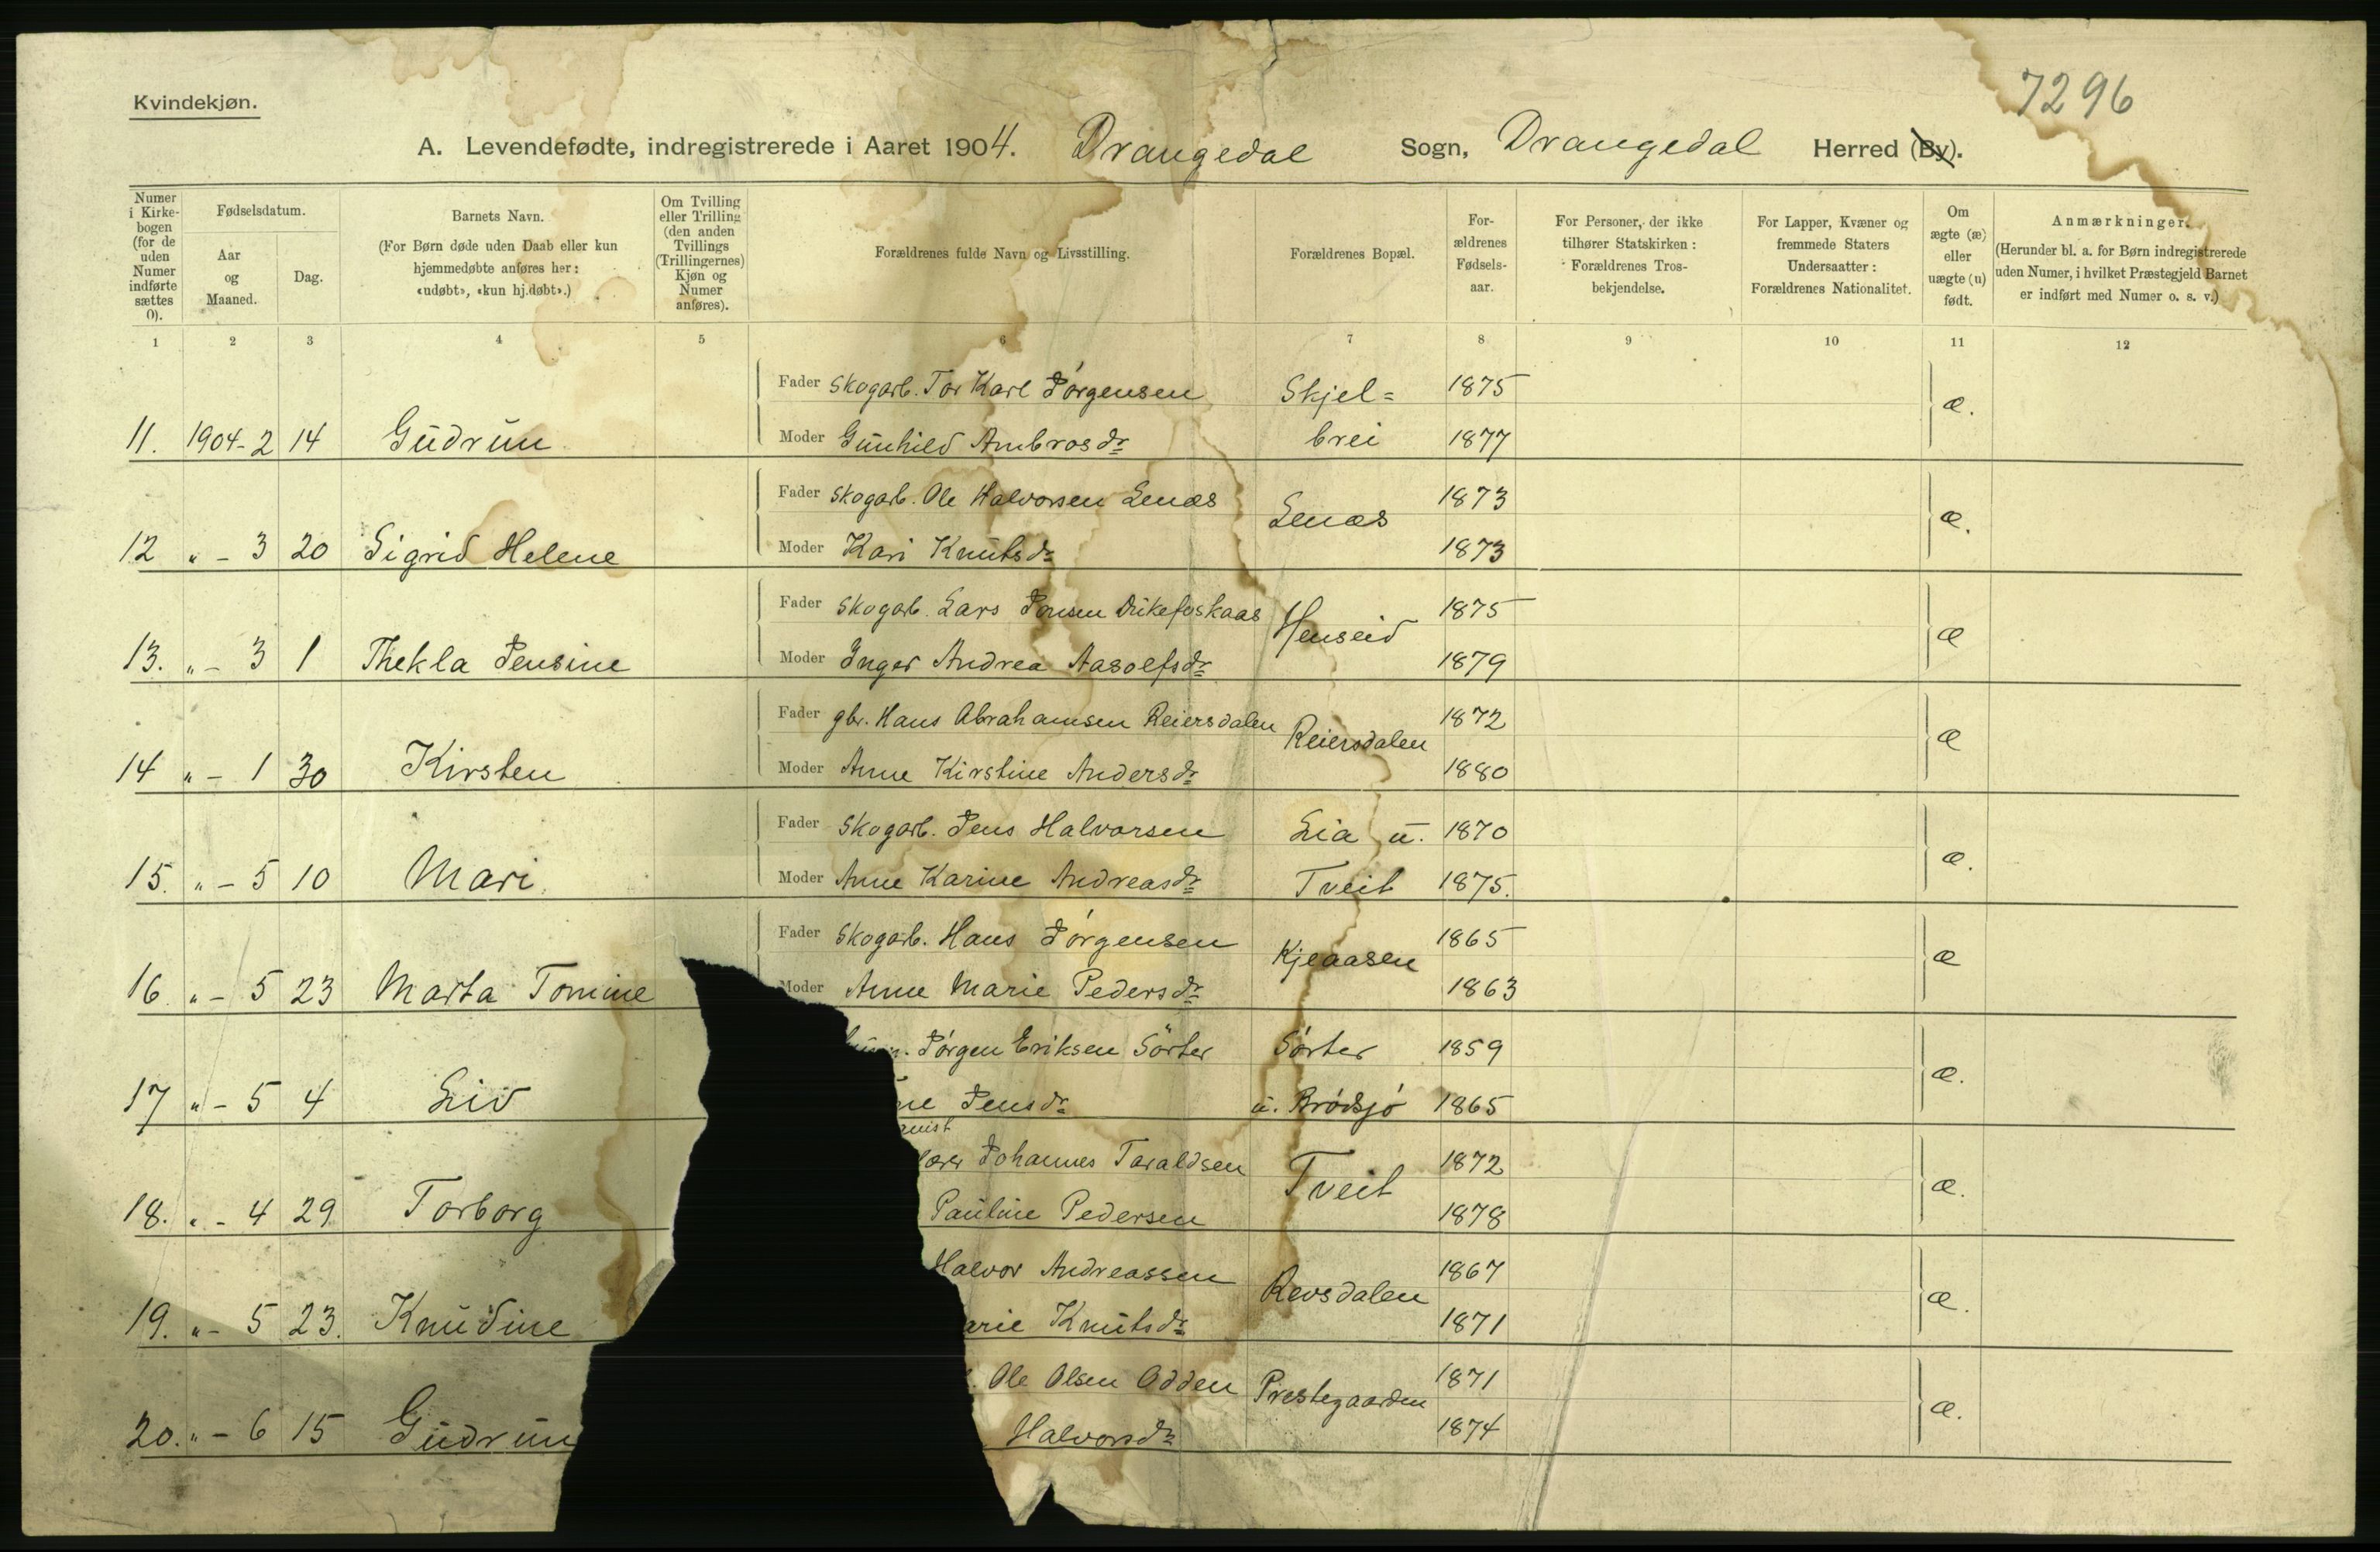 7296
Kvindekjøn.
A. Levendefødte, indregistrerede i Aaret 1904. Drangedal Sogn, Drangedal Herred (By).
Numer i Kirkebogen (for de uden Numer indførte sættes 0).
Fødselsdatum.
Aar og Maaned.
Dag.
Barnets Navn.
(For Børn døde uden Daab eller kun hjemmedøbte anføres her: «udøbt», «kun hj.døbt».)
Om Tvilling eller Trilling (den anden Tvillings (Trillingernes) Kjøn og Numer anføres).
Forældrenes fulde Navn og Livsstilling.
Forældrenes Bopæl.
For-ældrenes Fødsels-aar.
For Personer, der ikke tilhører Statskirken: Forældrenes Tros-bekjendelse.
For Lapper, Kvæner og fremmede Staters Undersaatter: Forældrenes Nationalitet.
Om ægte (æ) eller uægte (u) født.
Anmærkninger.
(Herunder bl. a. for Børn indregistrerede uden Numer, i hvilket Præstegjeld Barnet er indført med Numer o. s. v.)
1 2 3 4 5 6 7 8 9 10 11 12
Fader Skogarb. Tor Karl Jørgensen Skjel= 1875 æ.
11. 1904-2 14 Gudrun Moder Gunhild Ambrosdr brei 1877
Fader Skogarb. Ole Halvorsen Lenæs Lenæs 1873 æ.
12 " - 3 20 Sigrid Helene Moder Kari Knutsdr 1873
Fader Skogarb. Lars Jonsen Henseid 1875 æ
13. " - 3 1 Thekla Jensine Moder Inger Andrea Aasolfsdr 1879
Fader gbr. Hans Abrahamsen Reiersdalen Reiersdalen 1872 æ
14 " - 1 30 Kirsten Moder Anne Kirstine Andersdr 1880
Fader Skogarb. Jens Halvorsen Lia u. 1870 æ.
15. " - 5 10 Mari Moder Anne Karine Andreasdr Tveit 1875.
Fader Skogarb. Hans Jørgensen Kjeaasen 1865 æ
16. " - 5 23 Marta Tomine Moder Anne Marie Pedersdr 1863
Jørgen Eriksen Sörter Sörter 1859 æ.
17 " - 5 4 Liv ne Jensdr u. Brødsjø 1865
anist
lærer Johannes Taraldsen Tveit 1872 æ.
18. " - 4 29 Torborg Pauline Pedersen 1878
Halvor Andreassen Revsdalen 1867 æ.
19. " - 5 23. Knudine arie Knutsdr 1871
Ole Olsen Odden Prestegaarden 1871 æ.
20. " - 6 15 Gudrun Halvorsdr 1874